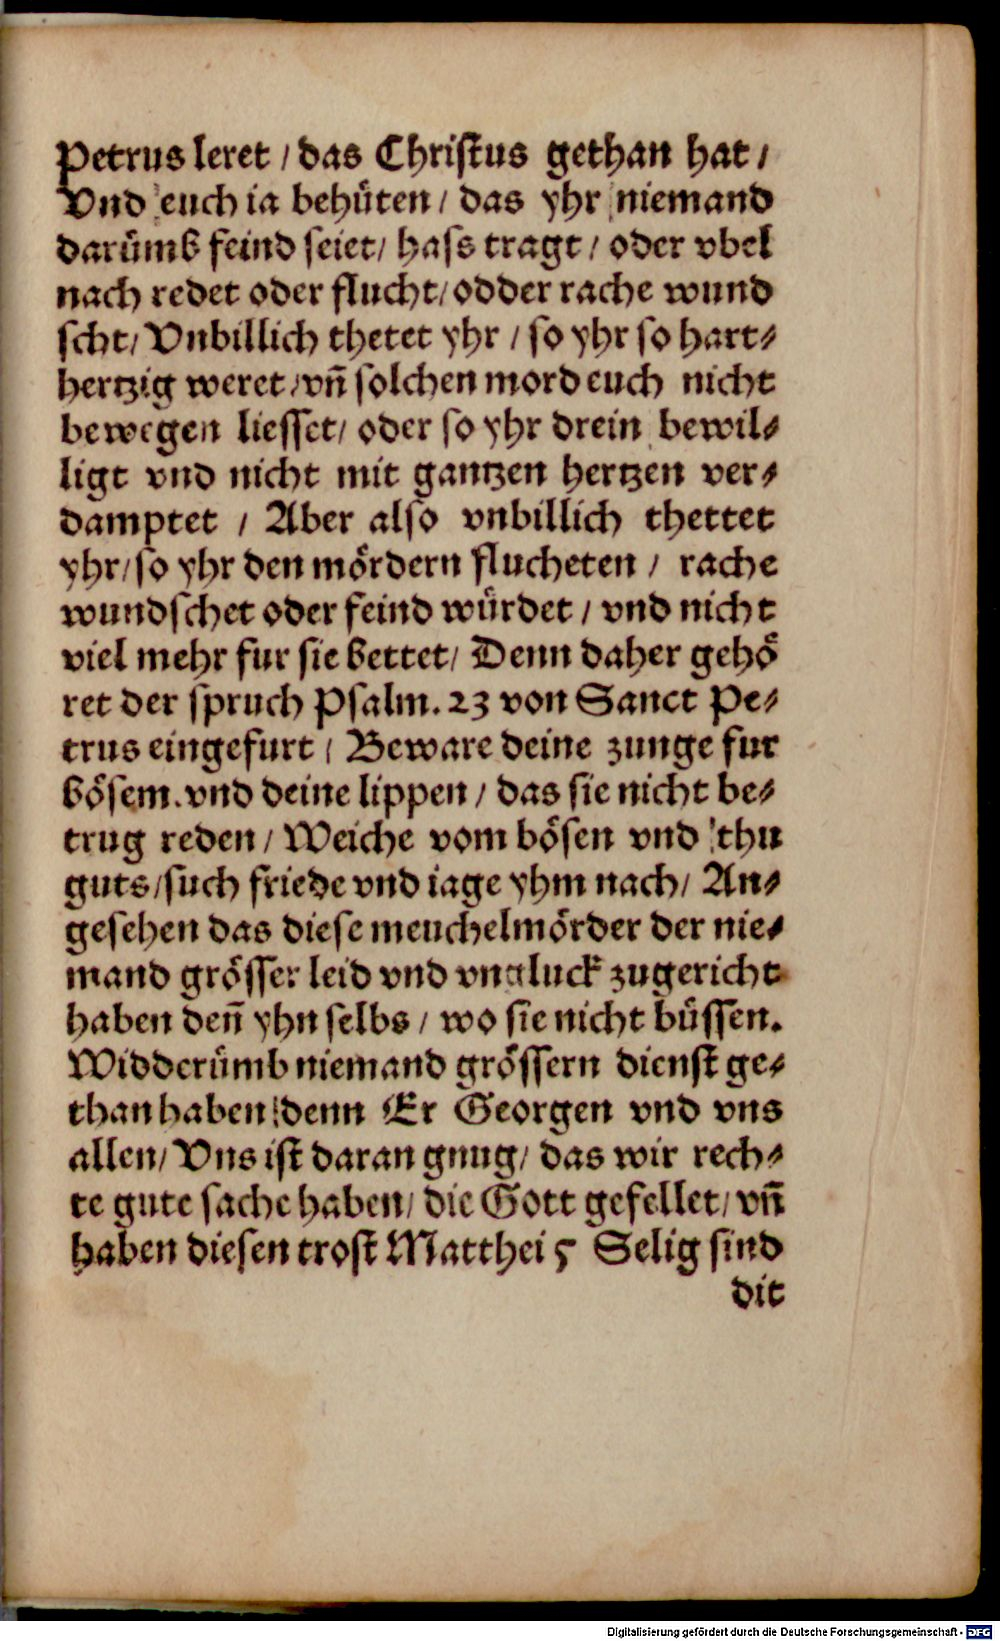 Petrus leret / das Christus gethan hat /
Vnd euch ia behüten / das yhr niemand
darümb feind seiet / hass tragt / oder vbel
nach redet oder flucht / odder rache wund
scht / Vnbillich thetet yhr / so yhr so hart⸗
hertzig weret / vñ solchen mord euch nicht
bewegen liesset / oder so yhr drein bewil⸗
ligt vnd nicht mit gantzen hertzen ver⸗
damptet / Aber also vnbillich thettet
yhr / so yhr den mördern flucheten / rache
wundschet oder feind würdet / vnd nicht
viel mehr fur sie bettet / Denn daher gehö
ret der spruch Psalm. 23 von Sanct Pe⸗
trus eingefurt / Beware deine zunge fur
bösem. vnd deine lippen / das sie nicht be⸗
trug reden / Weiche vom bösen vnd thu
guts / such friede vnd iage yhm nach / An⸗
gesehen das diese meuchelmörder der nie⸗
mand grösser leid vnd vngluck zugericht
haben deñ yhn selbs / wo sie nicht büssen.
Widderümb niemand grössern dienst ge⸗
than haben denn Er Georgen vnd vns
allen / Vns ist daran gnug / das wir rech⸗
te gute sache haben / die Gott gefellet / vñ
haben diesen trost Matthei 5 Selig sind
dit
Digitalisierung gefördert durch die Deutsche Forschungsgemeinschaft - DFG